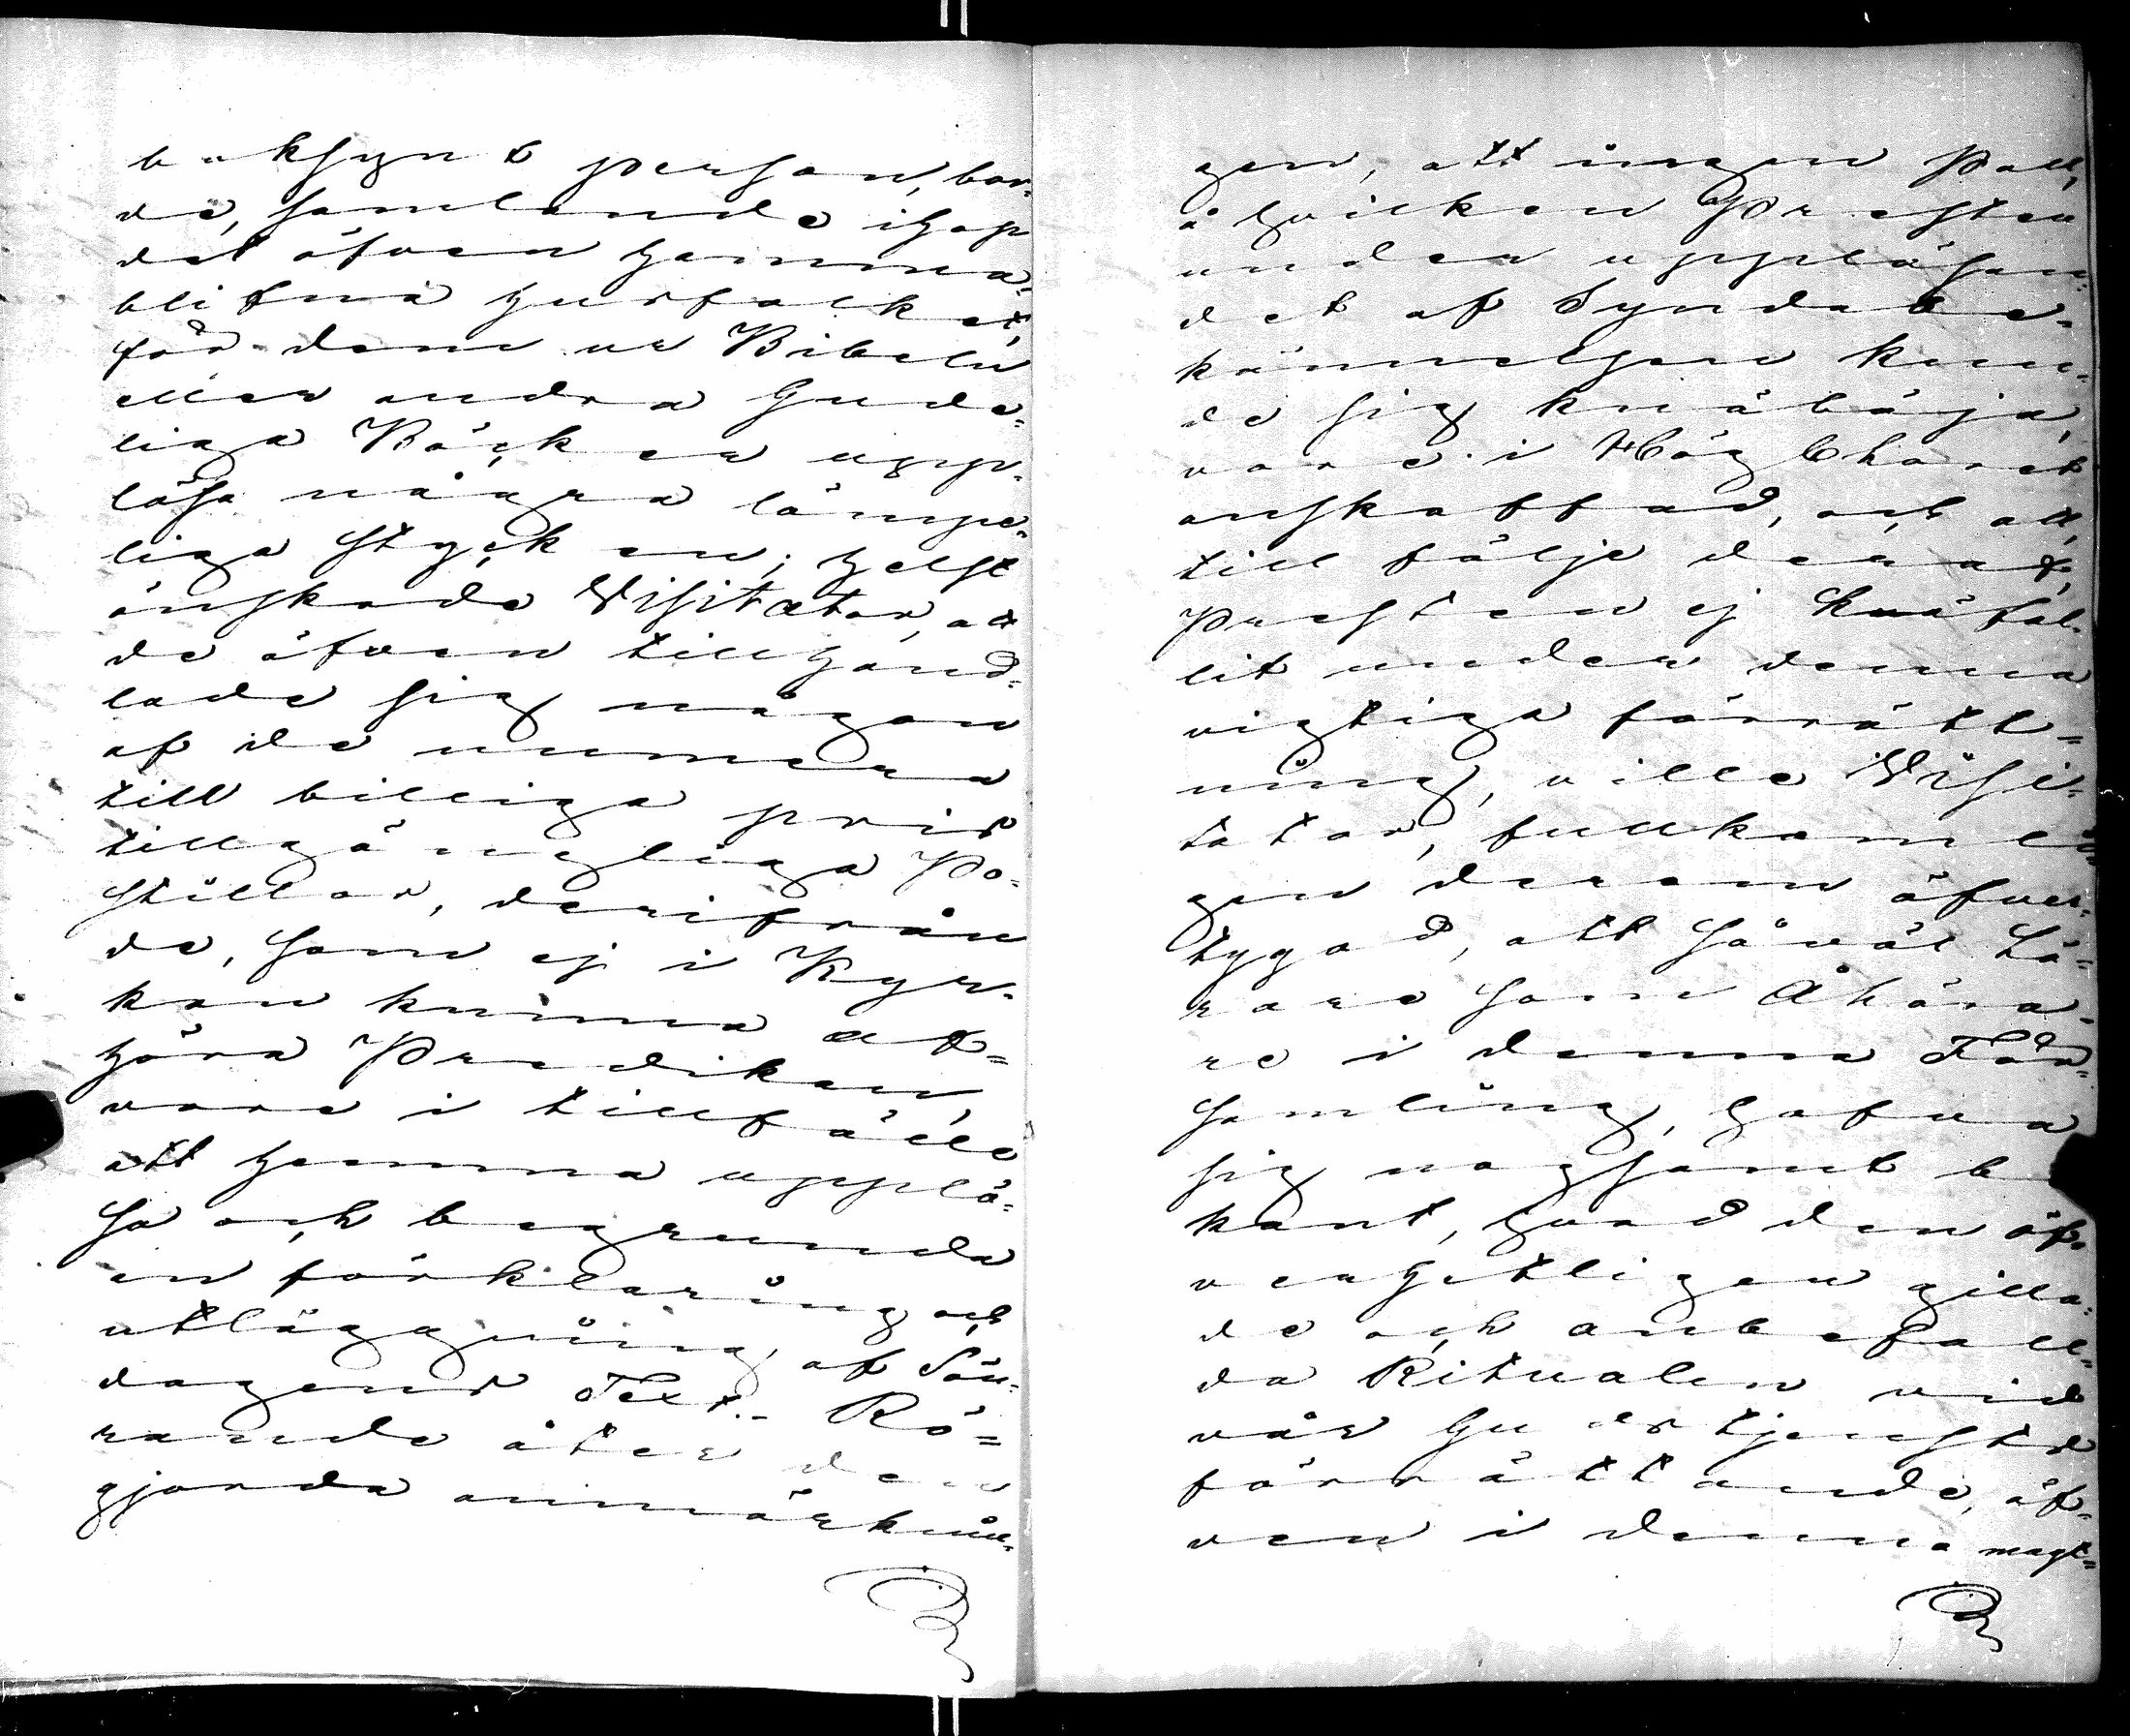 boksynt person, bor-
de, samlande ihop
det äfven hemma-
blifna husfolket,
för dem ur Bibeln
eller andra Gude-
liga Böcker upp-
läsa några lämpe-
liga stycken; helst
önskade Visitator, att
de äfven tillhand-
lade sig någon
af de numera
till billiga pris
tillgängliga Po-
stillor, derifrån
de, som ej i Kyr-
kan kunna af-
höra Predikan,
vore i tillfälle
att hemma upplä-
sa och begrunda
en förklaring och
utläggning af Sön-
dagens Text.- Rö-
rande åter den
gjorda anmärknin-
gen, att ingen Pall,
å hvilken Presten
under uppläsan-
det af Syndabe-
kännelsen kun-
de sig knäböja,
vore i Hög Choret
anskaffad, och att,
till följe deraf,
Presten ej knäfal-
lit under denna
vigtiga förrätt-
ning, ville Visi-
tator, fullkomli-
gen derom öfver-
tygad, att såväl Lä-
rare som Åhöra-
re i denna För-
samling, hafva
sig nogsamt be
kant, hvad den öf-
verhetligen gilla-
de och anbefall-
da Ritualen vid
vår Gudstjensts
förrättande, äf-
ven i denna magt-